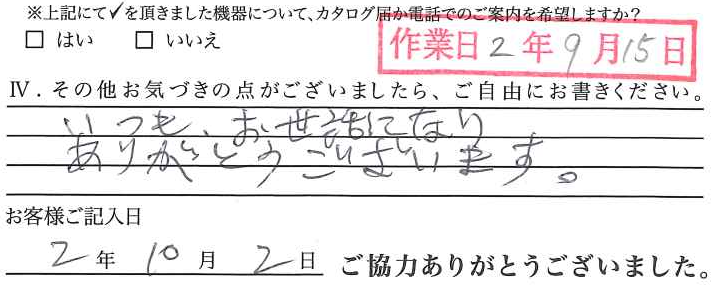 ※上記にて✓を頂きました機器について、カタログ届か電話でのご案内を希望しますか？
□ はい □ いいえ
作業日 2 年 9 月 15 日
Ⅳ．その他お気づきの点がございましたら、ご自由にお書きください。
いつも、お世話になり
ありがとうございます。
お客様ご記入日
2 年 10 月 2 日 ご協力ありがとうございました。